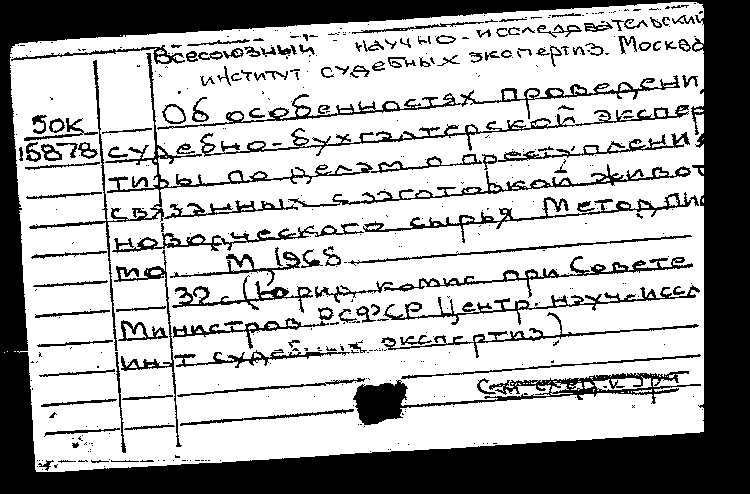 Всесоюзный научно-исследовательский
институт судебных экспертиз. Москва
Об особенностях проведени
50К
15878 судебно-бухгалтерской экспер
тизы по делам о преступлени
связанных с заготовкой живот
новодческого сырья Метод пис
мо. М 1968.
32 с (Юрид комис при Совете
Министров РСФСР Центр. науч-иссл
ин-т судебных экспертиз)
См. след. к